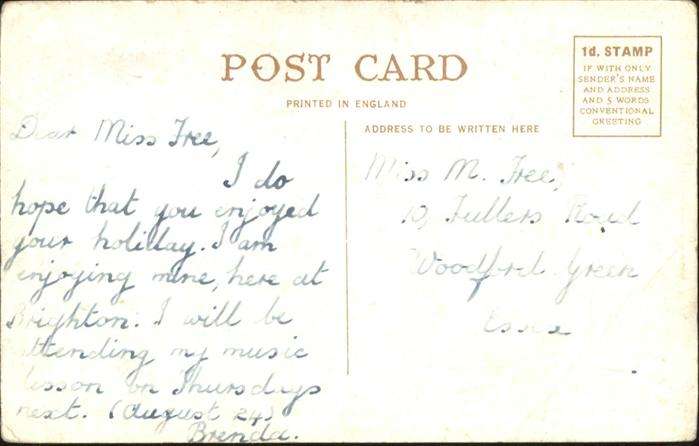 POST CARD
PRINTED IN ENGLAND
1d. STAMP
IF WITH ONLY
SENDER'S NAME
AND ADDRESS
AND 5 WORDS
CONVENTIONAL
GREETING
ADDRESS TO BE WRITTEN HERE
Dear Miss Free,
I do
hope that you enjoyed
your holiday. I am
enjoying mine, here at
Brighton. I will be
attending my music
lesson on Thursdays
next. (August 24)
Brenda.
Miss M. Free,
10, Fullers Road
Woodford Green
Essex